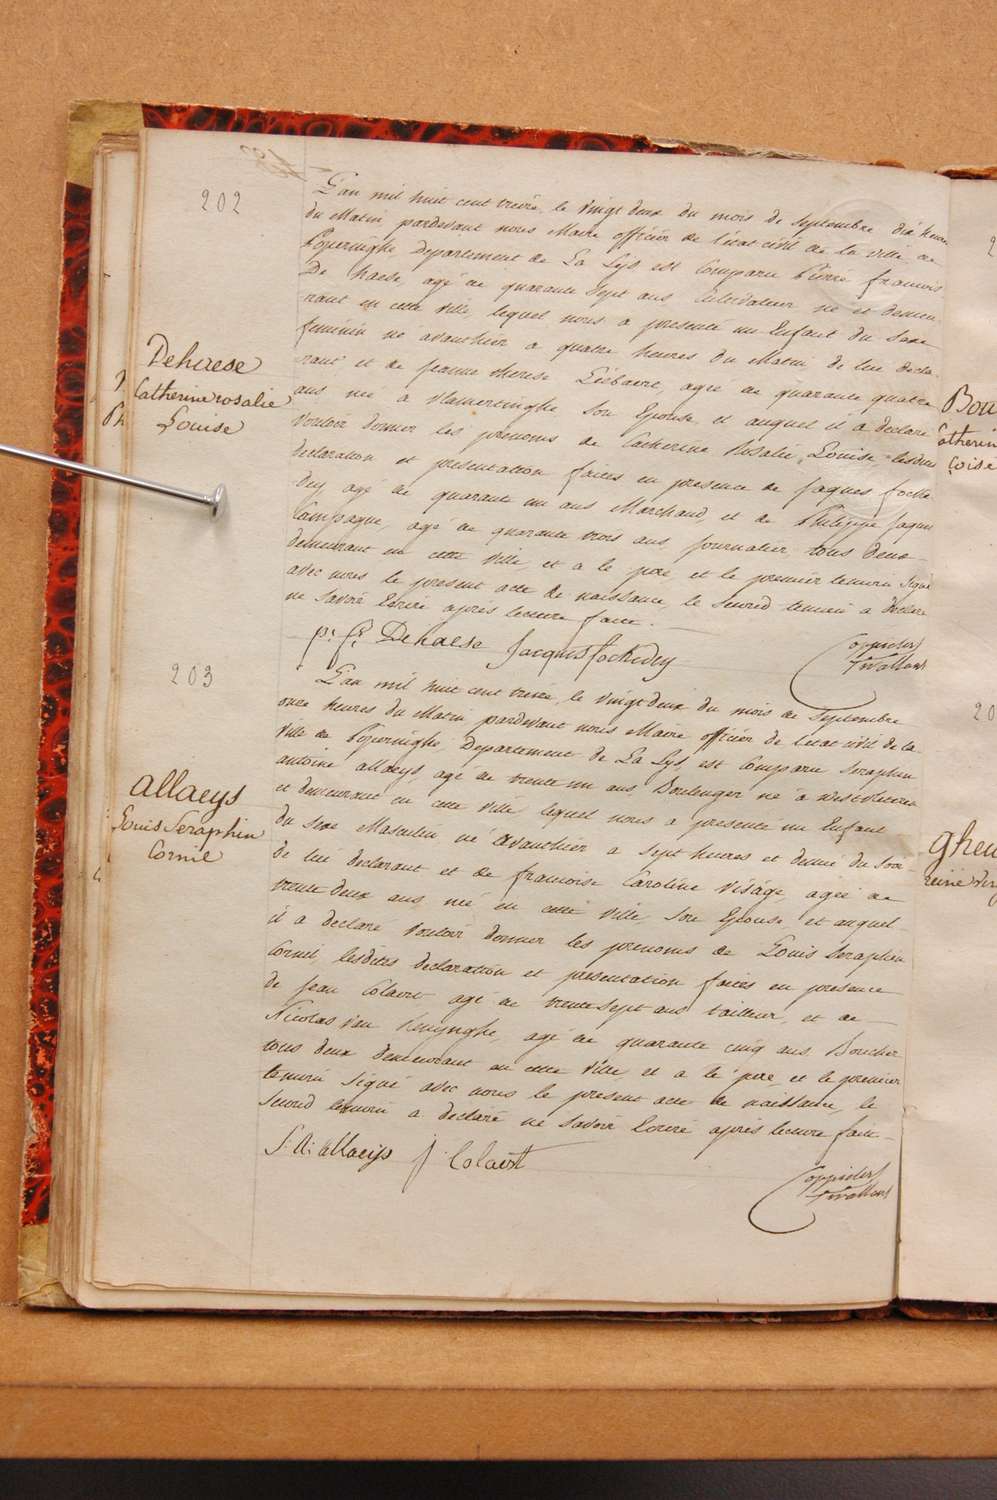 202
Dehaese
Catherine rosalie
Louise
L'an mil huit cent treize, le vingt deux du mois de Septembre dix heures
du Matin pardevant nous Maire officier de l'état civil de la ville de
Poperinghe Departement de La Lys est Comparu Pierre francois
De haese, agé de quarante Sept ans Cultivateur né et demeu-
rant en cette ville, lequel nous a presenté un Enfant du Sexe
feminin né avanthier a quatre heures du Matin de lui decla-
rant et de jeanne therese Liebaert, agée de quarante quatre
ans née a Vlamertinghe Son Epouse, et auquel il a declaré
vouloir donner les prenoms de Catherine Rosalie Louise, lesdites
declaration et presentation faites en presence de jaques focke-
dey, agé de quarante un ans Marchand, et de Philippe jaques
Campagne, agé de quarante trois ans journalier, tous deux
demeurant en cette ville, et a le pere, et le premier temoin Signé
avec nous le present acte de naissance, le Second temoin a declaré
ne Savoir Ecrire après lecture faite.
p: f: Dehaese Jacques fockedey
203
Allaeys
Louis Seraphin
Cornil
L'an mil huit cent treize, le vingt deux du mois de Septembre
onze heures du Matin pardevant nous Maire officier de l'état civil de la
ville de Poperinghe Departement de La Lys, est Comparu Seraphin
antoine allaeys, agé de trente un ans Boulenger né a
et demeurant en cette ville lequel nous a presenté un Enfant
du Sexe Masculin, né avanthier a Sept heures et demie du Soir
de lui declarant et de francoise Caroline Visage, agée de
trente deux ans, née en cette ville, Son Epouse, et auquel
il a declaré vouloir donner les prenoms de Louis Seraphin
Cornil, lesdites declaration et presentation faites en presence
de jean Colaert agé de trente Sept ans tailleur, et de
Nicolas van Kemynghe, agé de quarante cinq ans Boucher
tous deux demeurant en cette ville, et a le pere, et le premier
temoin Signé avec nous le present acte de naissance, le
Second temoin a declaré ne Savoir Ecrire après lecture faite.
S: A: allaeijs j: Colaert
Bou
Catherin
Loise
20
gheu